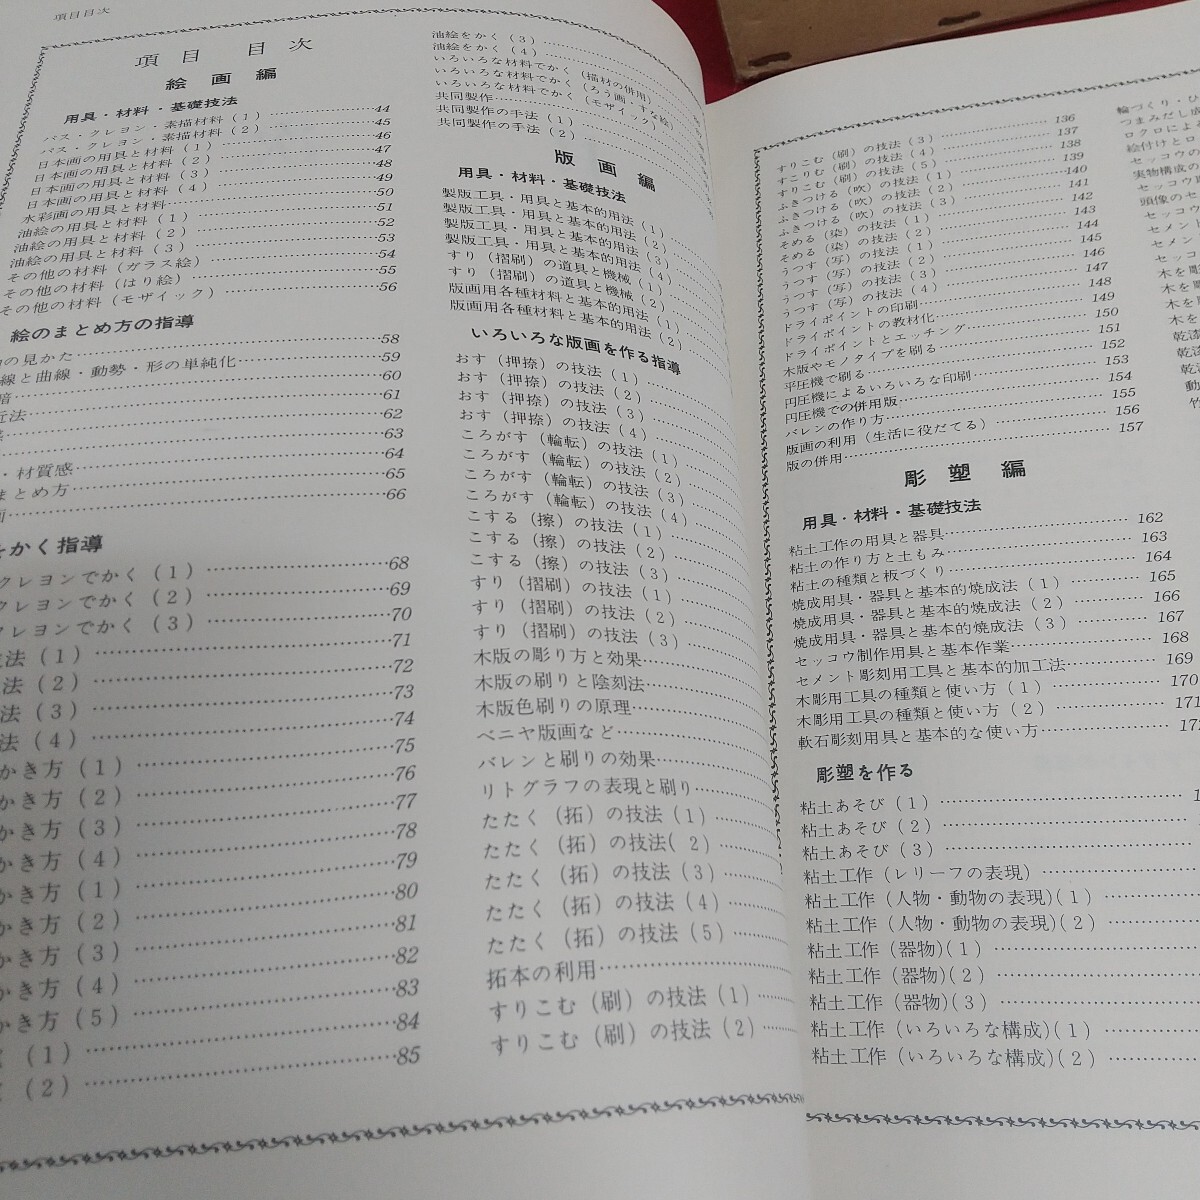 項目目次
項目 目次
絵画編
用具・材料・基礎技法
パス・クレヨン・素描材料(1)…44
パス・クレヨン・素描材料(2)…45
日本画の用具と材料(1)…46
日本画の用具と材料(2)…47
日本画の用具と材料(3)…48
日本画の用具と材料(4)…49
水彩画の用具と材料…50
油絵の用具と材料(1)…51
油絵の用具と材料(2)…52
油絵の用具と材料(3)…53
その他の材料(ガラス絵)…54
その他の材料(はり絵)…55
その他の材料(モザイック)…56
絵のまとめ方の指導
の見かた…58
線と曲線・動勢・形の単純化…59
…60
近法…61
…62
…63
・材質感…64
まとめ方…65
…66
をかく指導
クレヨンでかく(1)…68
クレヨンでかく(2)…69
クレヨンでかく(3)…70
法(1)…71
法(2)…72
法(3)…73
法(4)…74
かき方(1)…75
かき方(2)…76
かき方(3)…77
かき方(4)…78
かき方(1)…79
かき方(2)…80
かき方(3)…81
かき方(4)…82
かき方(5)…83
(1)…84
(2)…85
油絵をかく(3)…
油絵をかく(4)…
いろいろな材料でかく(描材の併用)…
いろいろな材料でかく(ろう画・すな絵)…
いろいろな材料でかく(モザイック)…
共同製作…
共同製作の手法(1)…
共同製作の手法(2)…
版画編
用具・材料・基礎技法
製版工具・用具と基本的用法(1)…
製版工具・用具と基本的用法(2)…
製版工具・用具と基本的用法(3)…
製版工具・用具と基本的用法(4)…
すり(摺刷)の道具と機械(1)…
すり(摺刷)の道具と機械(2)…
版画用各種材料と基本的用法(1)…
版画用各種材料と基本的用法(2)…
いろいろな版画を作る指導
おす(押捺)の技法(1)…
おす(押捺)の技法(2)…
おす(押捺)の技法(3)…
おす(押捺)の技法(4)…
ころがす(輪転)の技法(1)…
ころがす(輪転)の技法(2)…
ころがす(輪転)の技法(3)…
ころがす(輪転)の技法(4)…
こする(擦)の技法(1)…
こする(擦)の技法(2)…
こする(擦)の技法(3)…
すり(摺刷)の技法(1)…
すり(摺刷)の技法(2)…
すり(摺刷)の技法(3)…
木版の彫り方と効果…
木版の刷りと陰刻法…
木版色刷りの原理…
ベニヤ版画など…
バレンと刷りの効果…
リトグラフの表現と刷り…
たたく(拓)の技法(1)…
たたく(拓)の技法(2)…
たたく(拓)の技法(3)…
たたく(拓)の技法(4)…
たたく(拓)の技法(5)…
拓本の利用…
すりこむ(刷)の技法(1)…
すりこむ(刷)の技法(2)…
すりこむ(刷)の技法(3)…136
すこりむ(刷)の技法(4)…137
すりこむ(刷)の技法(5)…138
ふきつける(吹)の技法(1)…139
ふきつける(吹)の技法(2)…140
ふきつける(吹)の技法(3)…141
そめる(染)の技法(1)…142
そめる(染)の技法(2)…143
うつす(写)の技法(1)…144
うつす(写)の技法(2)…145
うつす(写)の技法(3)…146
うつす(写)の技法(4)…147
ドライポイントの印刷…148
ドライポイントの教材化…149
ドライポイントとエッチング…150
木版やモノタイプを刷る…151
平圧機で刷る…152
円圧機によるいろいろな印刷…153
円圧機での併用版…154
バレンの作り方…155
版画の利用(生活に役だてる)…156
版の併用…157
彫塑編
用具・材料・基礎技法
粘土工作の用具と器具…162
粘土の作り方と土もみ…163
粘土の種類と板づくり…164
焼成用具・器具と基本的焼成法(1)…165
焼成用具・器具と基本的焼成法(2)…166
焼成用具・器具と基本的焼成法(3)…167
セッコウ制作用具と基本作業…168
セメント彫刻用工具と基本的加工法…169
木彫用工具の種類と使い方(1)…170
木彫用工具の種類と使い方(2)…171
軟石彫刻用具と基本的な使い方…172
彫塑を作る
粘土あそび(1)…1
粘土あそび(2)…
粘土あそび(3)…
粘土工作(レリーフの表現)…
粘土工作(人物・動物の表現)(1)…
粘土工作(人物・動物の表現)(2)…
粘土工作(器物)(1)…
粘土工作(器物)(2)…
粘土工作(器物)(3)…
粘土工作(いろいろな構成)(1)…
粘土工作(いろいろな構成)(2)…
輪づくり・ひ
つまみだし成
ロクロによる
絵付けとロ
セッコウの
実物構成の
セッコウ
頭像のセ
セッコウ
セメント
セメン
セッコ
木を彫
木を彫
木を
木を
乾漆
乾漆
乾漆
動
竹